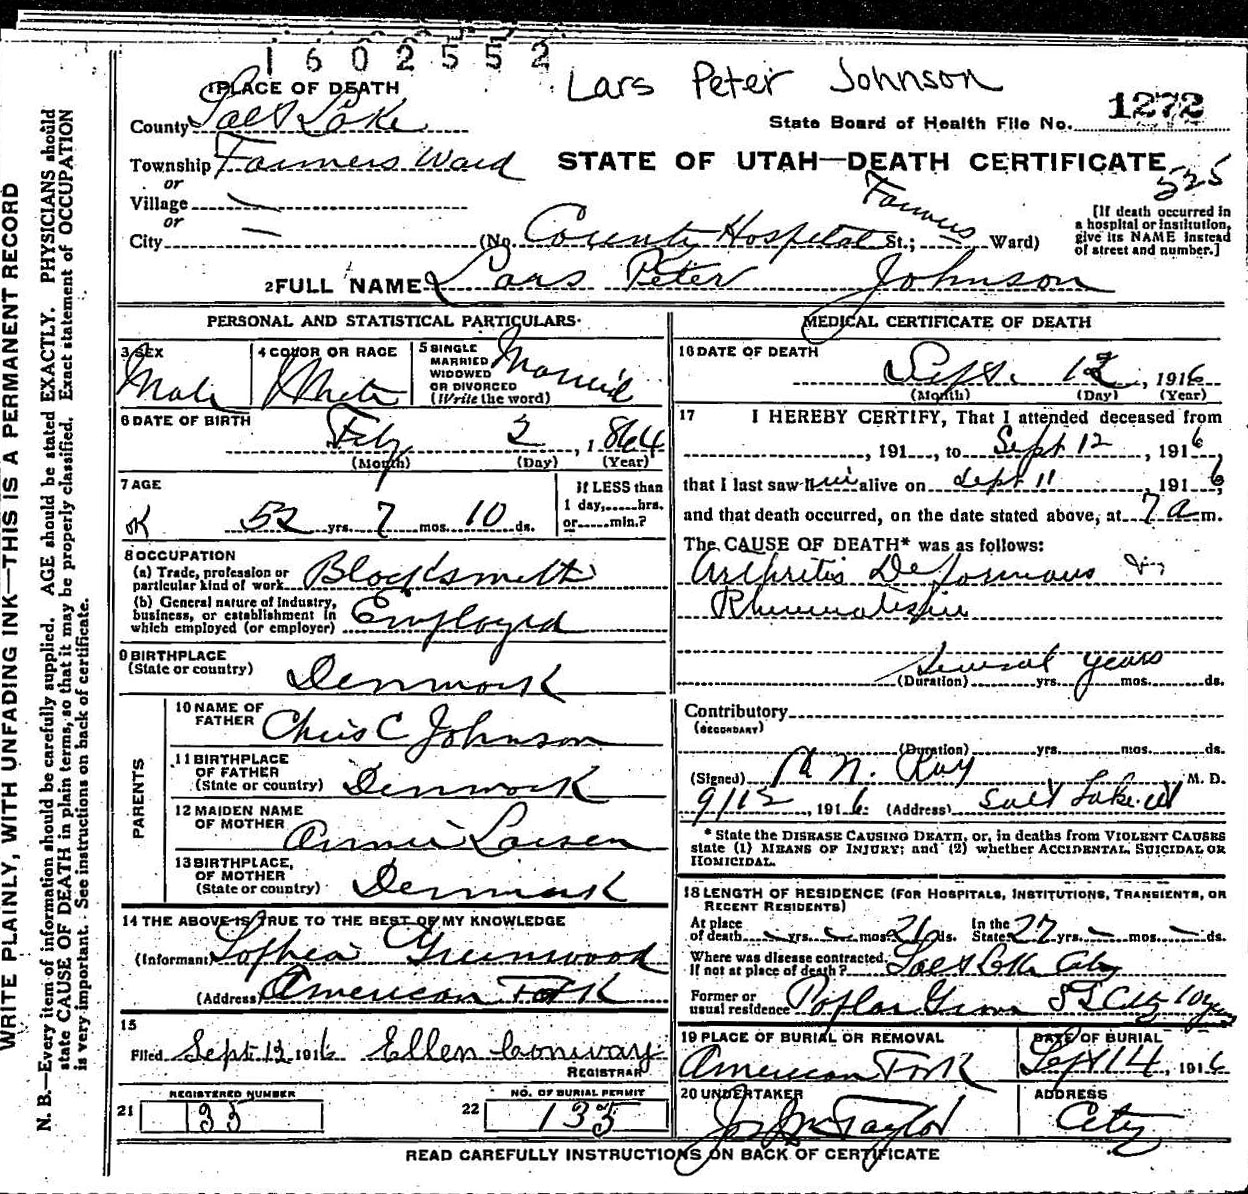 1602552
Lars Peter Johnson
1 PLACE OF DEATH
County Salt Lake
State Board of Health File No. 1272
Township Farmers Ward
STATE OF UTAH—DEATH CERTIFICATE
525
or
Village —
or
City — (No. County Hospital St.; Farmers Ward)
[If death occurred in a hospital or institution, give its NAME instead of street and number.]
2 FULL NAME Lars Peter Johnson
PERSONAL AND STATISTICAL PARTICULARS
3 SEX Male
4 COLOR OR RACE White
5 SINGLE MARRIED WIDOWED OR DIVORCED (Write the word) Married
6 DATE OF BIRTH Feby 2, 1864
(Month) (Day) (Year)
7 AGE
OK 52 yrs. 7 mos. 10 ds.
If LESS than 1 day,......hrs. or......min.?
8 OCCUPATION
(a) Trade, profession or particular kind of work Blacksmith
(b) General nature of industry, business, or establishment in which employed (or employer) Employed
9 BIRTHPLACE
(State or country) Denmark
PARENTS
10 NAME OF FATHER Chris C Johnson
11 BIRTHPLACE OF FATHER (State or country) Denmark
12 MAIDEN NAME OF MOTHER Annie Larsen
13 BIRTHPLACE OF MOTHER (State or country) Denmark
14 THE ABOVE IS TRUE TO THE BEST OF MY KNOWLEDGE
(Informant) Sophia Greenwood
(Address) American Fork
15
Filed Sept 12 1916 Ellen Conway
REGISTRAR
21 REGISTERED NUMBER 35
22 NO. OF BURIAL PERMIT 135
MEDICAL CERTIFICATE OF DEATH
16 DATE OF DEATH
Sept. 12, 1916
(Month) (Day) (Year)
17 I HEREBY CERTIFY, That I attended deceased from
, 191 , to Sept 12, 1916,
that I last saw him alive on Sept 11 1916,
and that death occurred, on the date stated above, at 7 a m.
The CAUSE OF DEATH* was as follows:
Arthritis Deformans
Rheumatism
several years
(Duration) yrs. mos. ds.
Contributory
(SECONDARY)
(Duration) yrs. mos. ds.
(Signed) Ray M. D.
9/12, 1916 (Address) Salt Lake
* State the DISEASE CAUSING DEATH, or, in deaths from VIOLENT CAUSES
state (1) MEANS OF INJURY; and (2) whether ACCIDENTAL, SUICIDAL OR
HOMICIDAL.
18 LENGTH OF RESIDENCE (FOR HOSPITALS, INSTITUTIONS, TRANSIENTS, OR
RECENT RESIDENTS)
At place of death — yrs. — mos. 26 ds. In the State 27 yrs. — mos. — ds.
Where was disease contracted, if not at place of death? Salt Lake City
Former or usual residence Poplar Grove S L City 10 yrs
19 PLACE OF BURIAL OR REMOVAL
American Fork
DATE OF BURIAL
Sept 14, 1916
20 UNDERTAKER
Taylor
ADDRESS
City
READ CAREFULLY INSTRUCTIONS ON BACK OF CERTIFICATE
WRITE PLAINLY, WITH UNFADING INK—THIS IS A PERMANENT RECORD
N. B.—Every item of information should be carefully supplied. AGE should be stated EXACTLY. PHYSICIANS should
state CAUSE OF DEATH in plain terms, so that it may be properly classified. Exact statement of OCCUPATION
is very important. See instructions on back of certificate.